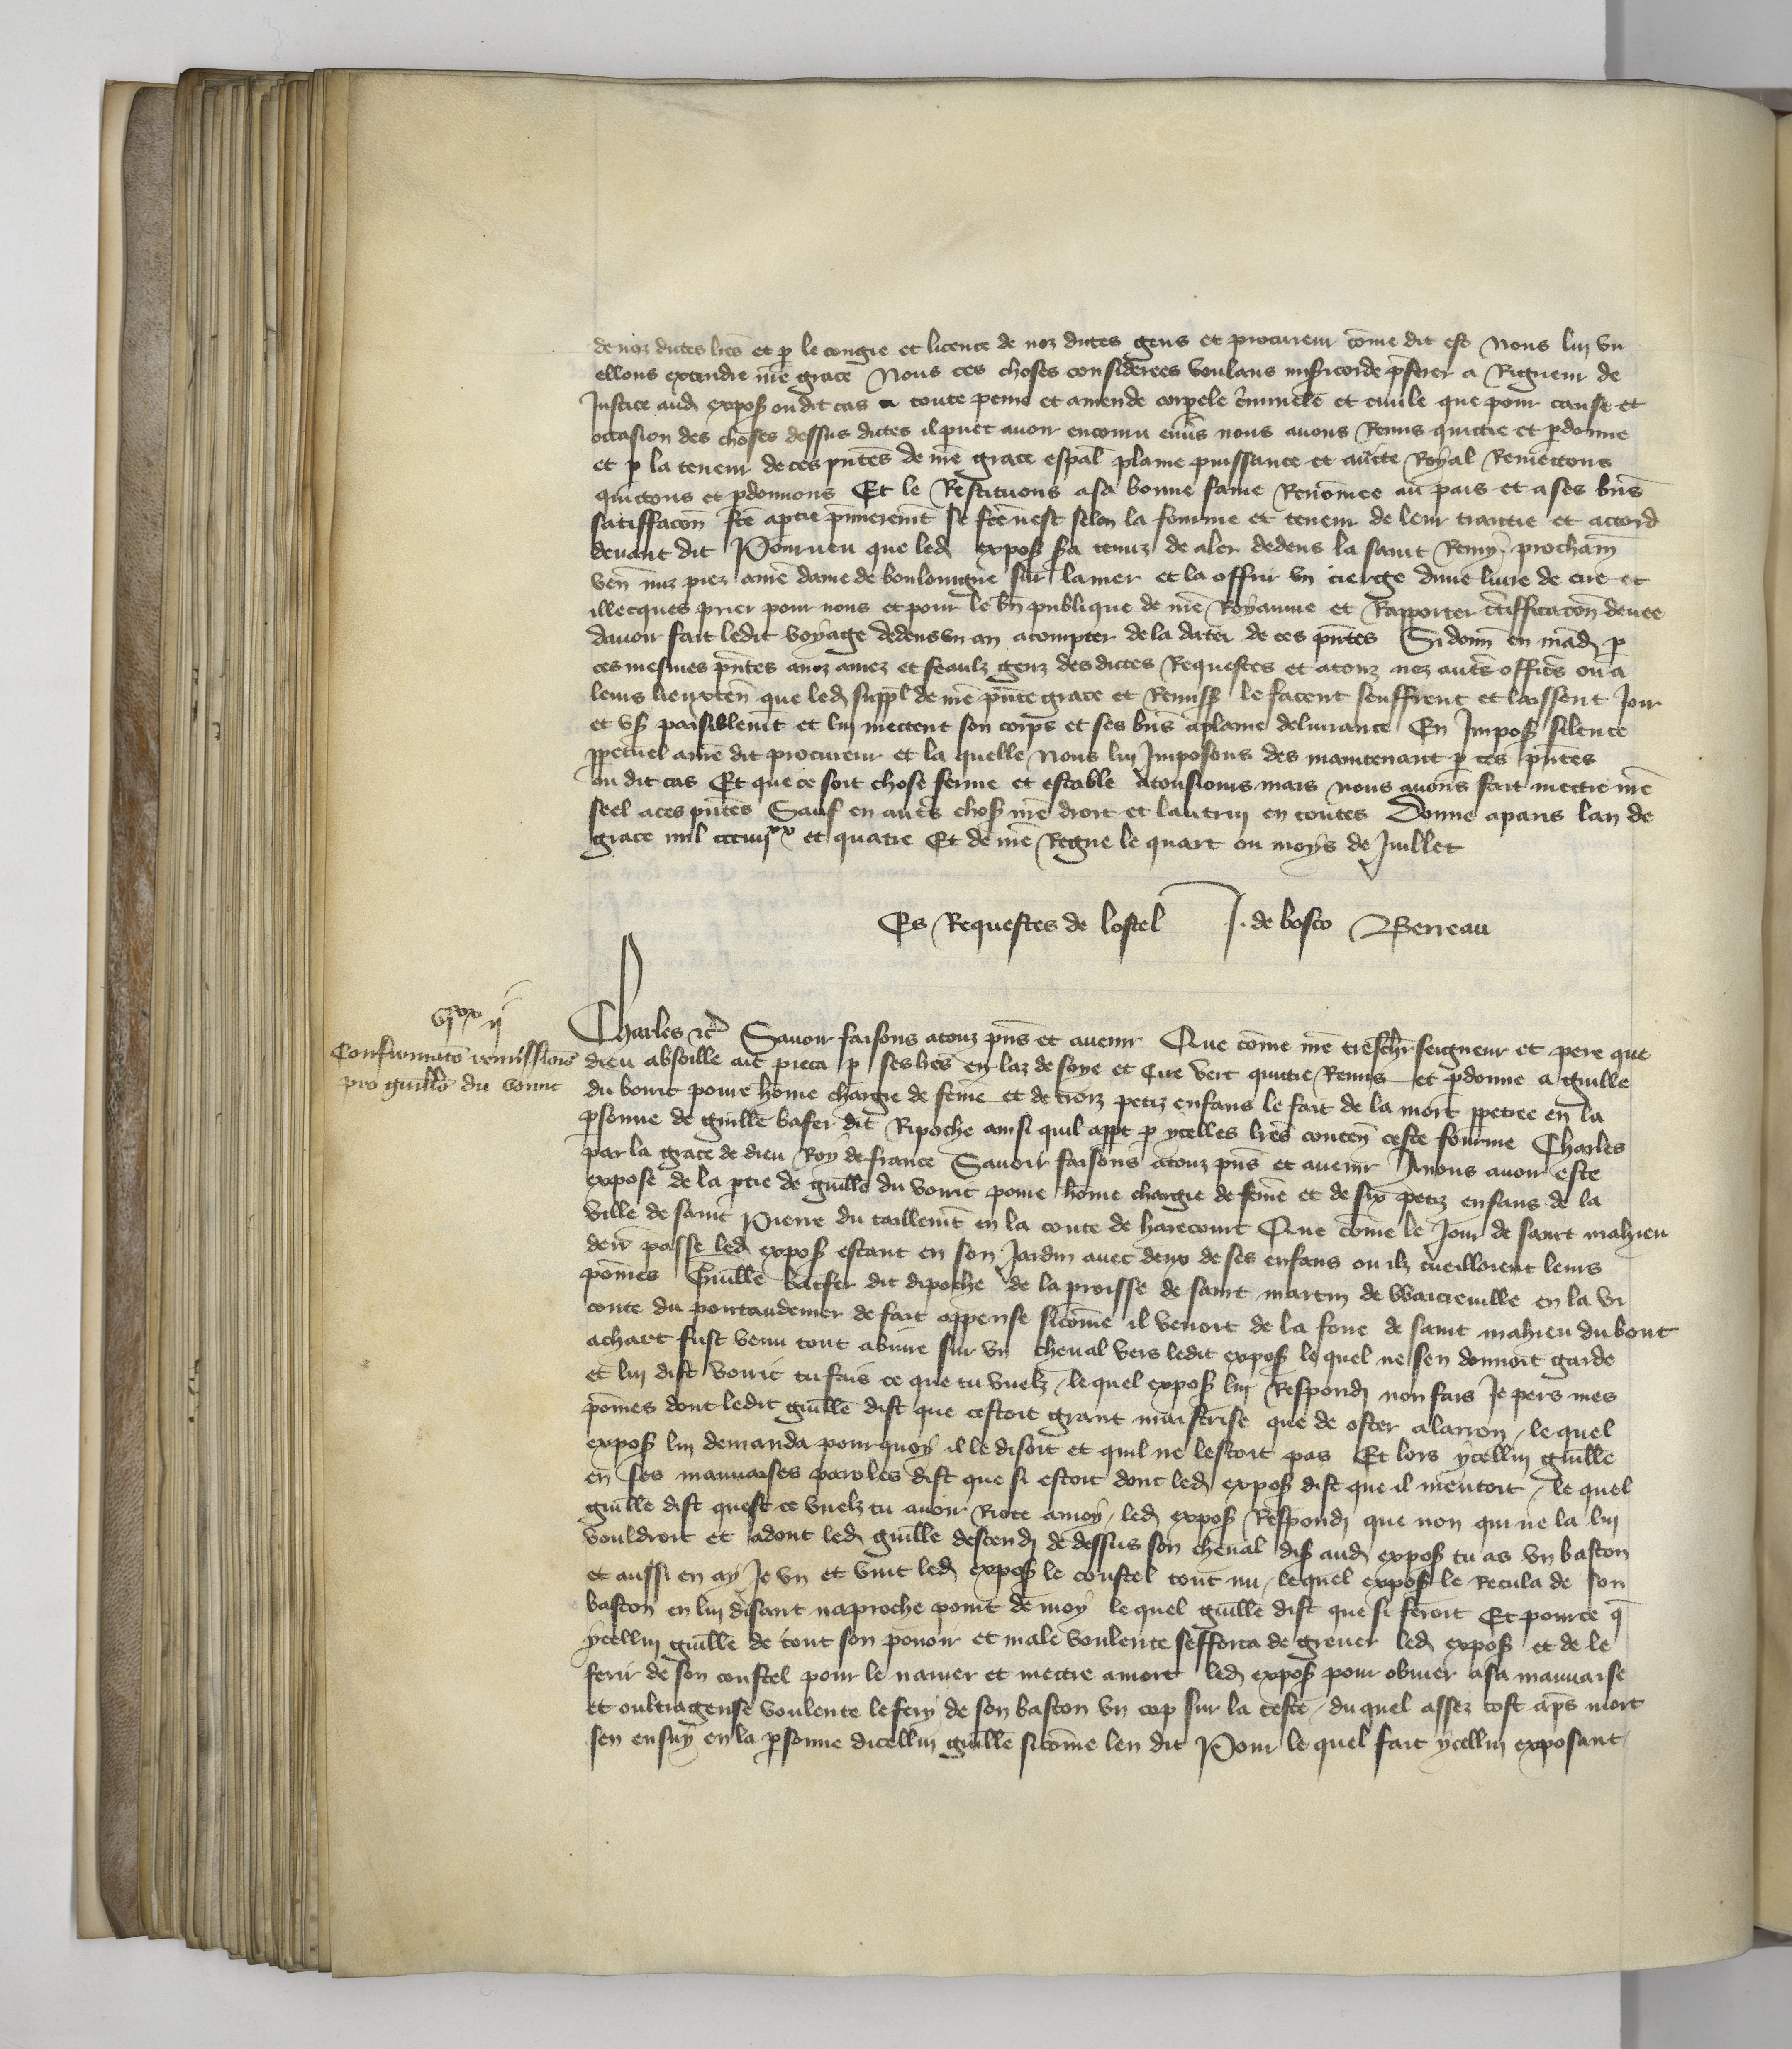 de noz dictes lres et p le congie et licence de noz dictes gens et procureur come dit est nous lui vu
ellons extendre nre grace Nous ces choses considerees voulans misericorde pferer a Rigueur de
Justice aud expos ou dit cas a toute peine et amende corporele criminele et civile que pour cause et
occasion des choses dessus dictes il puet avoir encouru envs nous avons Remis quictie et pdonne
et p la teneur de ces pntes de nre grace espal plaine puissance et aucte Royal Remectons
quictons et pdonnons Et le Restituons a sa bonne fame Renomee au pais et a ses bns
satiffacon fce a ptie pmierement se fce nest selon la fourme et teneur de leur traictie et accord
devant dit Pourveu que led expos sa tenuz de aler dedens la saint Remy prochain
ven nuz piez a nre dame de bouloingne sur la mer et la offrir vn cierge dune livre de cire et
illecques prier pour nous et pour le bn publique de nre Royaume et Rapporter ctifficacon deuee
davoir fait ledit voyage dedens vn an a compter de la date de ces pntes Si donn en mad p
ces mesmes pntes a noz amez et feaulz genz des dictes Requestes et a touz noz autes offics ou a
leurs lieuxten que led suppl de nre pnte grace et Remiss le facent seuffrent et laissent Joir
et us paisiblemt et lui mectent son corps et ses bns a plaine delivrance En Impos silence
ppetuel a nre dit procureur et la quelle nous lui Imposons des maintenant p ces pntes
ou dit cas Et que ce soit chose ferme et estable a tousiours mais nous avons fait mectre nre
seel a ces pntes Sauf en autes chos nre droit et lautrui en toutes Donne a paris lan de
grace mil ccciiijxx et quatre Et de nre Regne le quart ou moys de Juillet
Es Requestes de lostel J. de bosco Berreau
vjxx ij
Confirmaco remissionis
pro guillo du bourc
Charles etc Savoir faisons a touz pns et avenir Que come nre treschr seigneur et pere que
dieu absoille ait pieca p ses lres en laz de soye et cire vert quictie Remis et pdonne a guille
du bourc povre home chargie de feme et de troiz petiz enfans le fait de la mort ppetree en la
psonne de guille bafer dit Ripoche ainsi quil appt p ycelles lres conten ceste fourme Charles
par la grace de dieu Roy de france Savoir faisons a touz pns et avenir A nous avoir este
expose de la ptie de guille du bourc povre home chargie de feme et de six petiz enfans de la
ville de saint Pierre du taillemt en la conte de harecourt Que come le Jour de saint mahieu
den passe led expos estant en son Jardin avec deux de ses enfans ou ilz cueilloient leurs
pomes Guille batfer dit dipoche de la proisse de saint martin de Waitreville en la vi
conte du pontaudemer de fait appense sicome il venoit de la foire de saint mahieu du bout
achart fust venu tout abrive sur vn cheval vers ledit expos le quel ne sen donnoit garde
et lui dist bourc tu fais ce que tu vuelz / le quel expos lui Respond non fais Je pers mes
pomes dont ledit guille dist que cestoit grant maistrise que de oster a larron / le quel
expos lui demanda pour quoy il le disoit et quil ne lestoit pas Et lors ycellui guille
en ses mauvaises paroles dist que si estoit dont led expos dist que il mentoit / le quel
guille dist quest ce vuelz tu avoir Riote a moy / led expos Respond que non qui ne la lui
vouldroit et adont led guille descend de dessus son cheval dis aud expos tu as vn baston
et aussi en ay Je vn et vint led expos le coustel tout nu / lequel expos le Recula de son
baston en lui disant naproche point de moy le quel guille dist que si feroit Et pource q
ycellui guille de tout son povoir et male voulente sefforca de grever led expos et de le
ferir de son coustel pour le navrer et mectre a mort led expos pour obvier a sa mauvaise
et oultrageuse voulente le fery de son baston vn cop sur la teste / du quel assez tost aps mort
sen ensuy en la psonne dicellui guille sicome len dit Pour le quel fait ycellui exposant